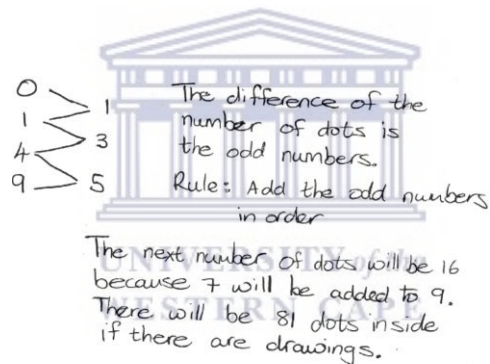 0
1
1
3
4
5
9
The difference of the
number of dots is
the odd numbers.
Rule: Add the odd numbers
in order
The next number of dots will be 16
because 7 will be added to 9.
There will be 81 dots inside
if there are drawings.
UNIVERSITY of the
WESTERN CAPE